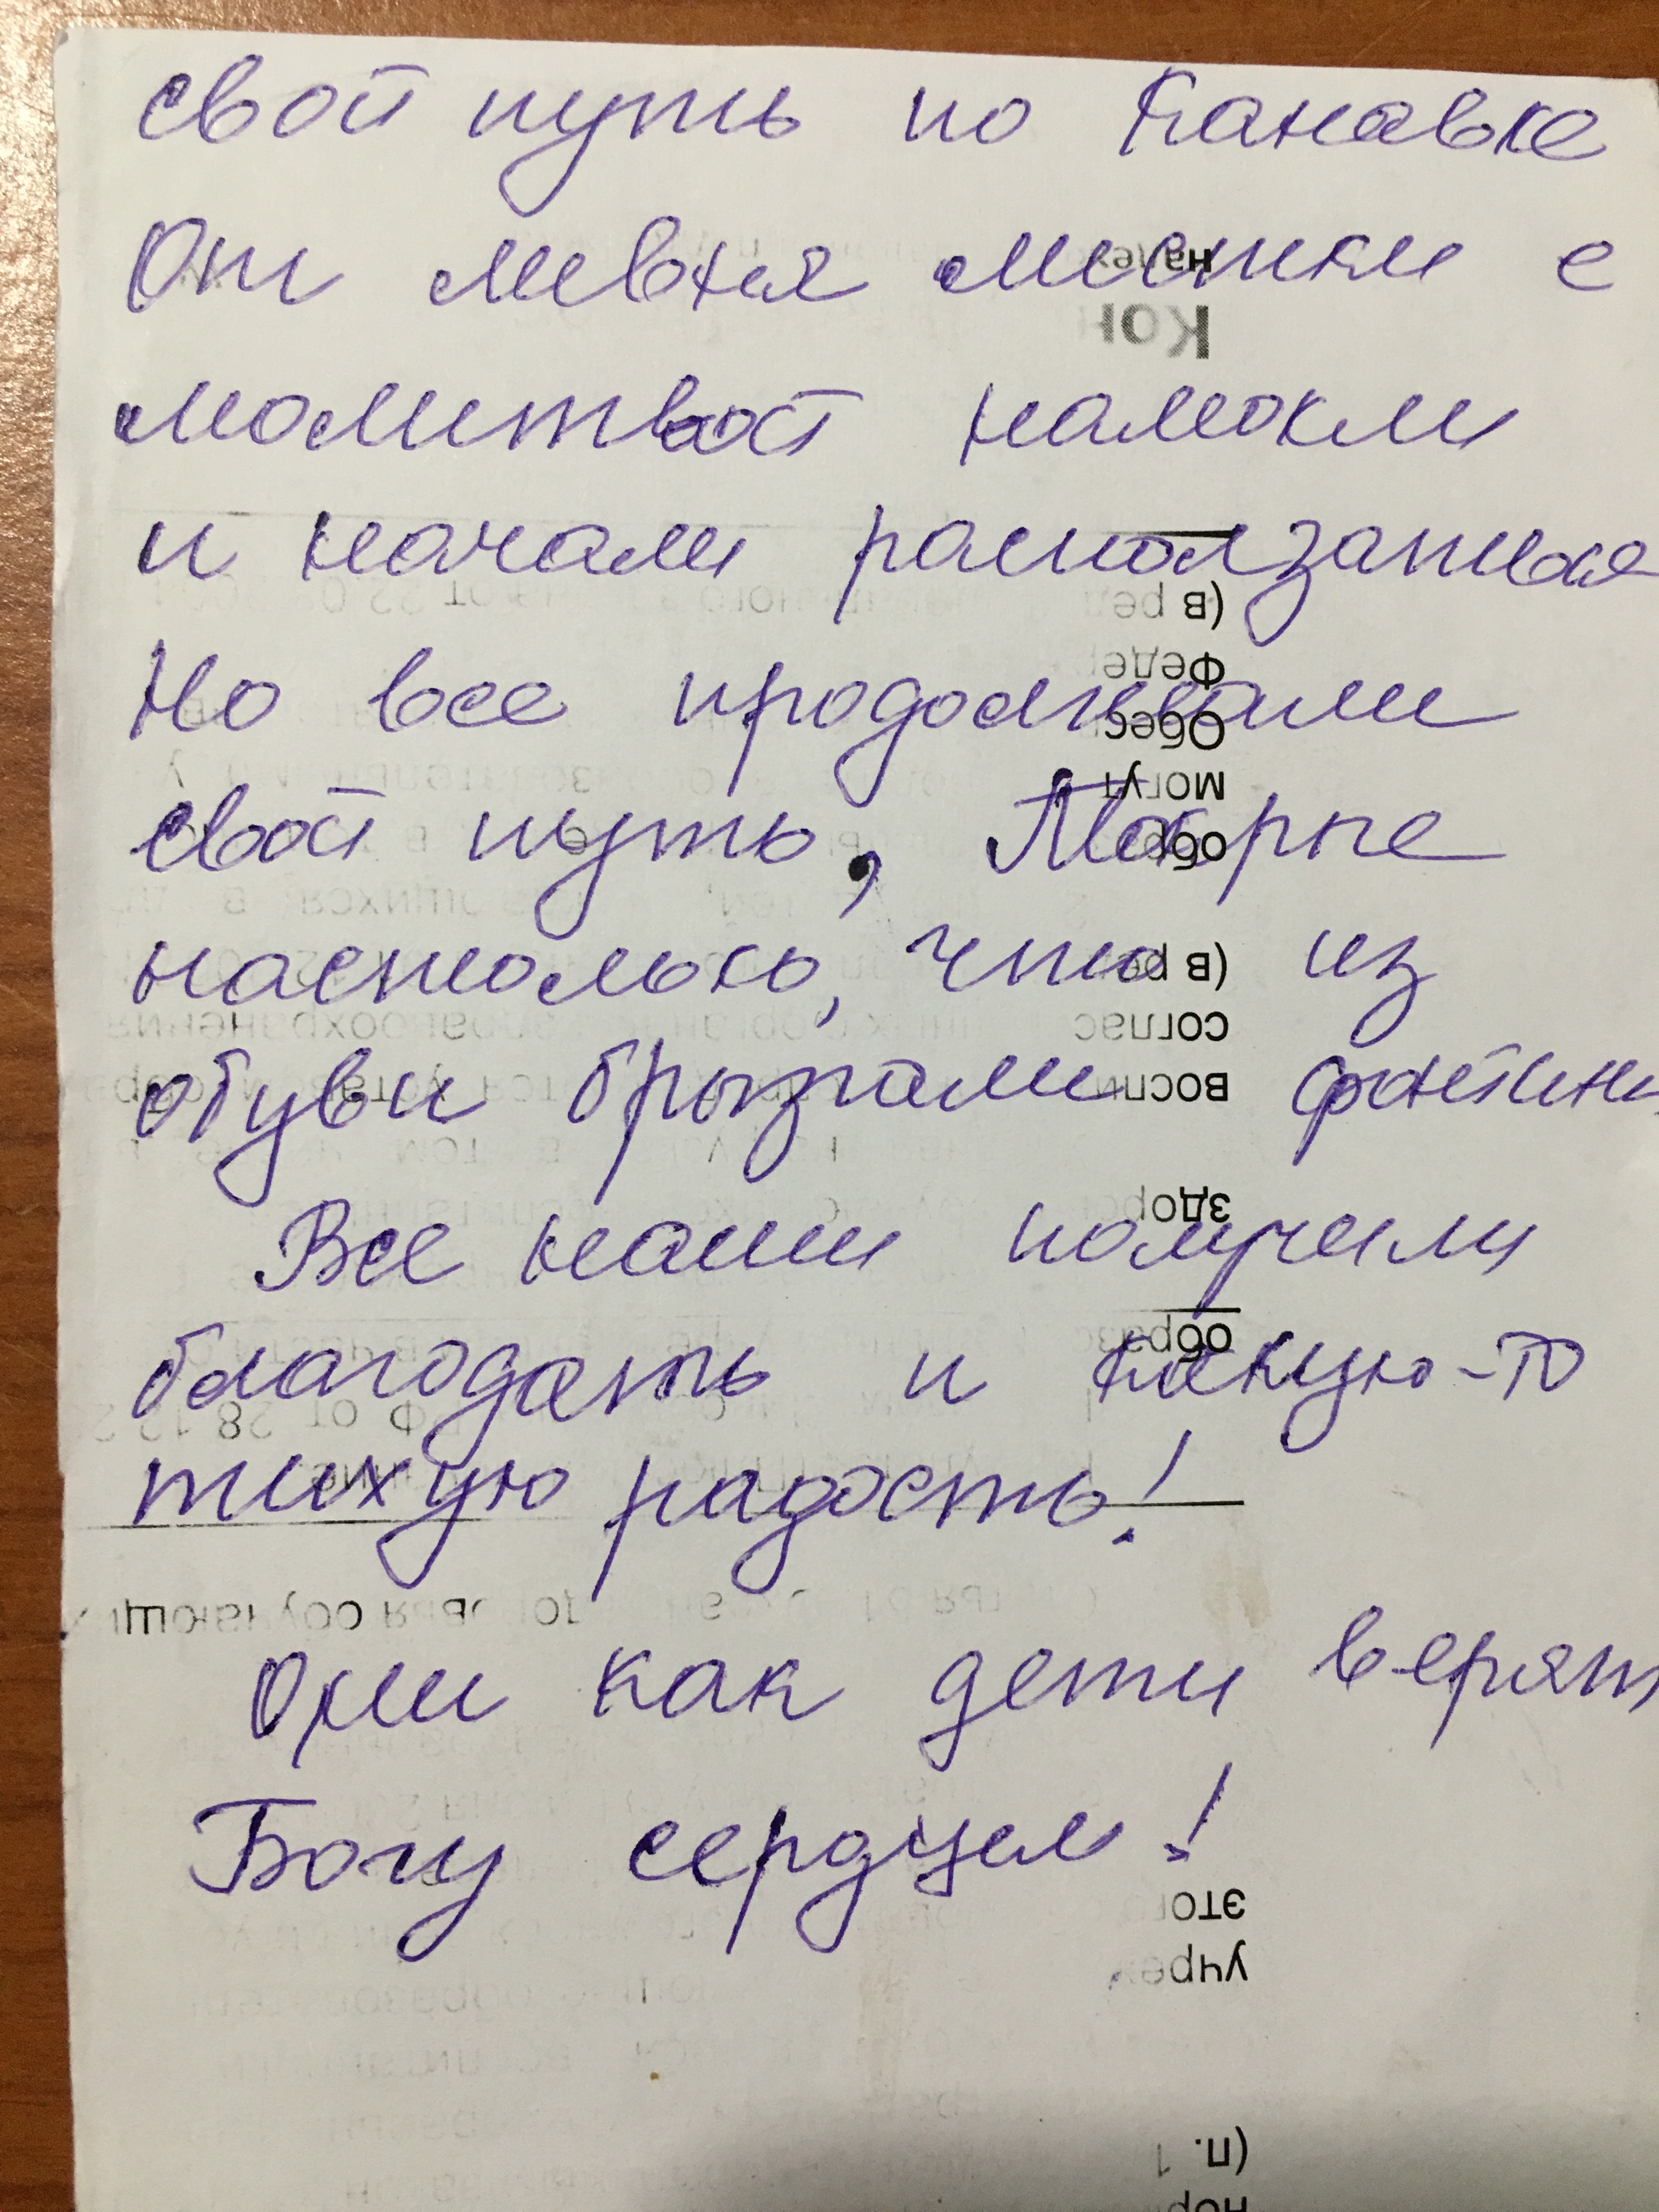 свой путь по Канавке
От ливня листки с
молитвой намокли
и начали расползаться
Но все продолжали
свой путь, Мокрые
настолько, что из
обуви брызгали фонтаны
Все наши получили
благодать и какую-то
тихую радость!
Они как дети верят
Богу сердцем!